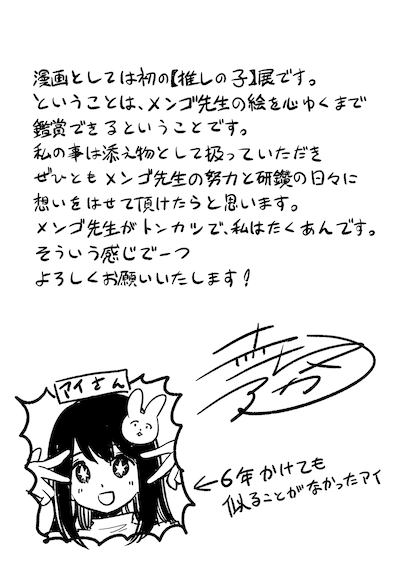 漫画としては初の【推しの子】展です。
ということは、メンゴ先生の絵を心ゆくまで
鑑賞できるということです。
私の事は添え物として扱っていただき
ぜひともメンゴ先生の努力と研鑽の日々に
想いをはせて頂けたらと思います。
メンゴ先生がトンカツで、私はたくあんです。
そういう感じで一つ
よろしくお願いいたします!
赤坂アカ
アイさん
←6年かけても
似ることがなかったアイ